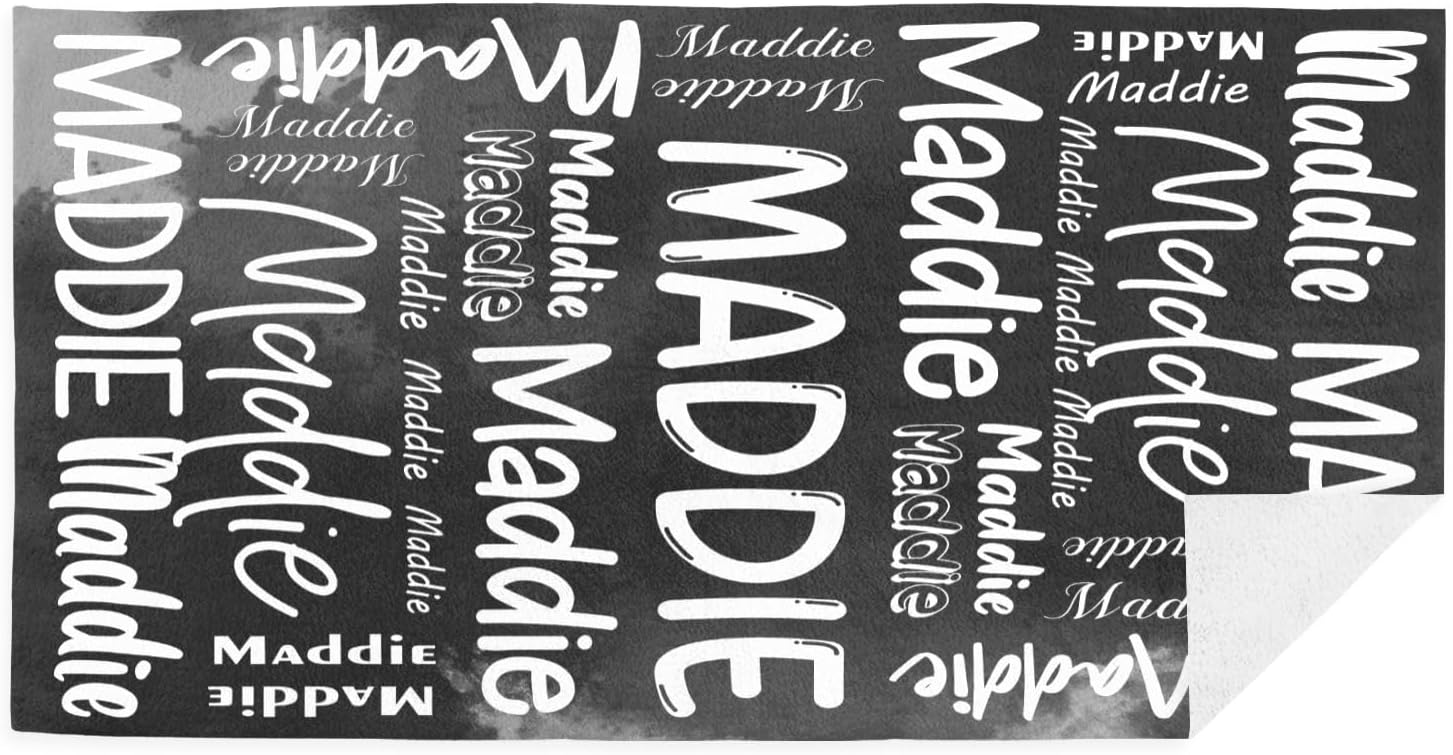 MADDIE Maddie
Maddie
Maddie
Maddie
Maddie
Maddie Maddie Maddie
MADDIE
MADDIE
Maddie
Maddie
Maddie
Maddie
Maddie
MADDIE
Maddie
Maddie
Maddie
MADDIE
Maddie
Maddie Maddie Maddie
Maddie
addie
Mad
Maddie
Maddie MA